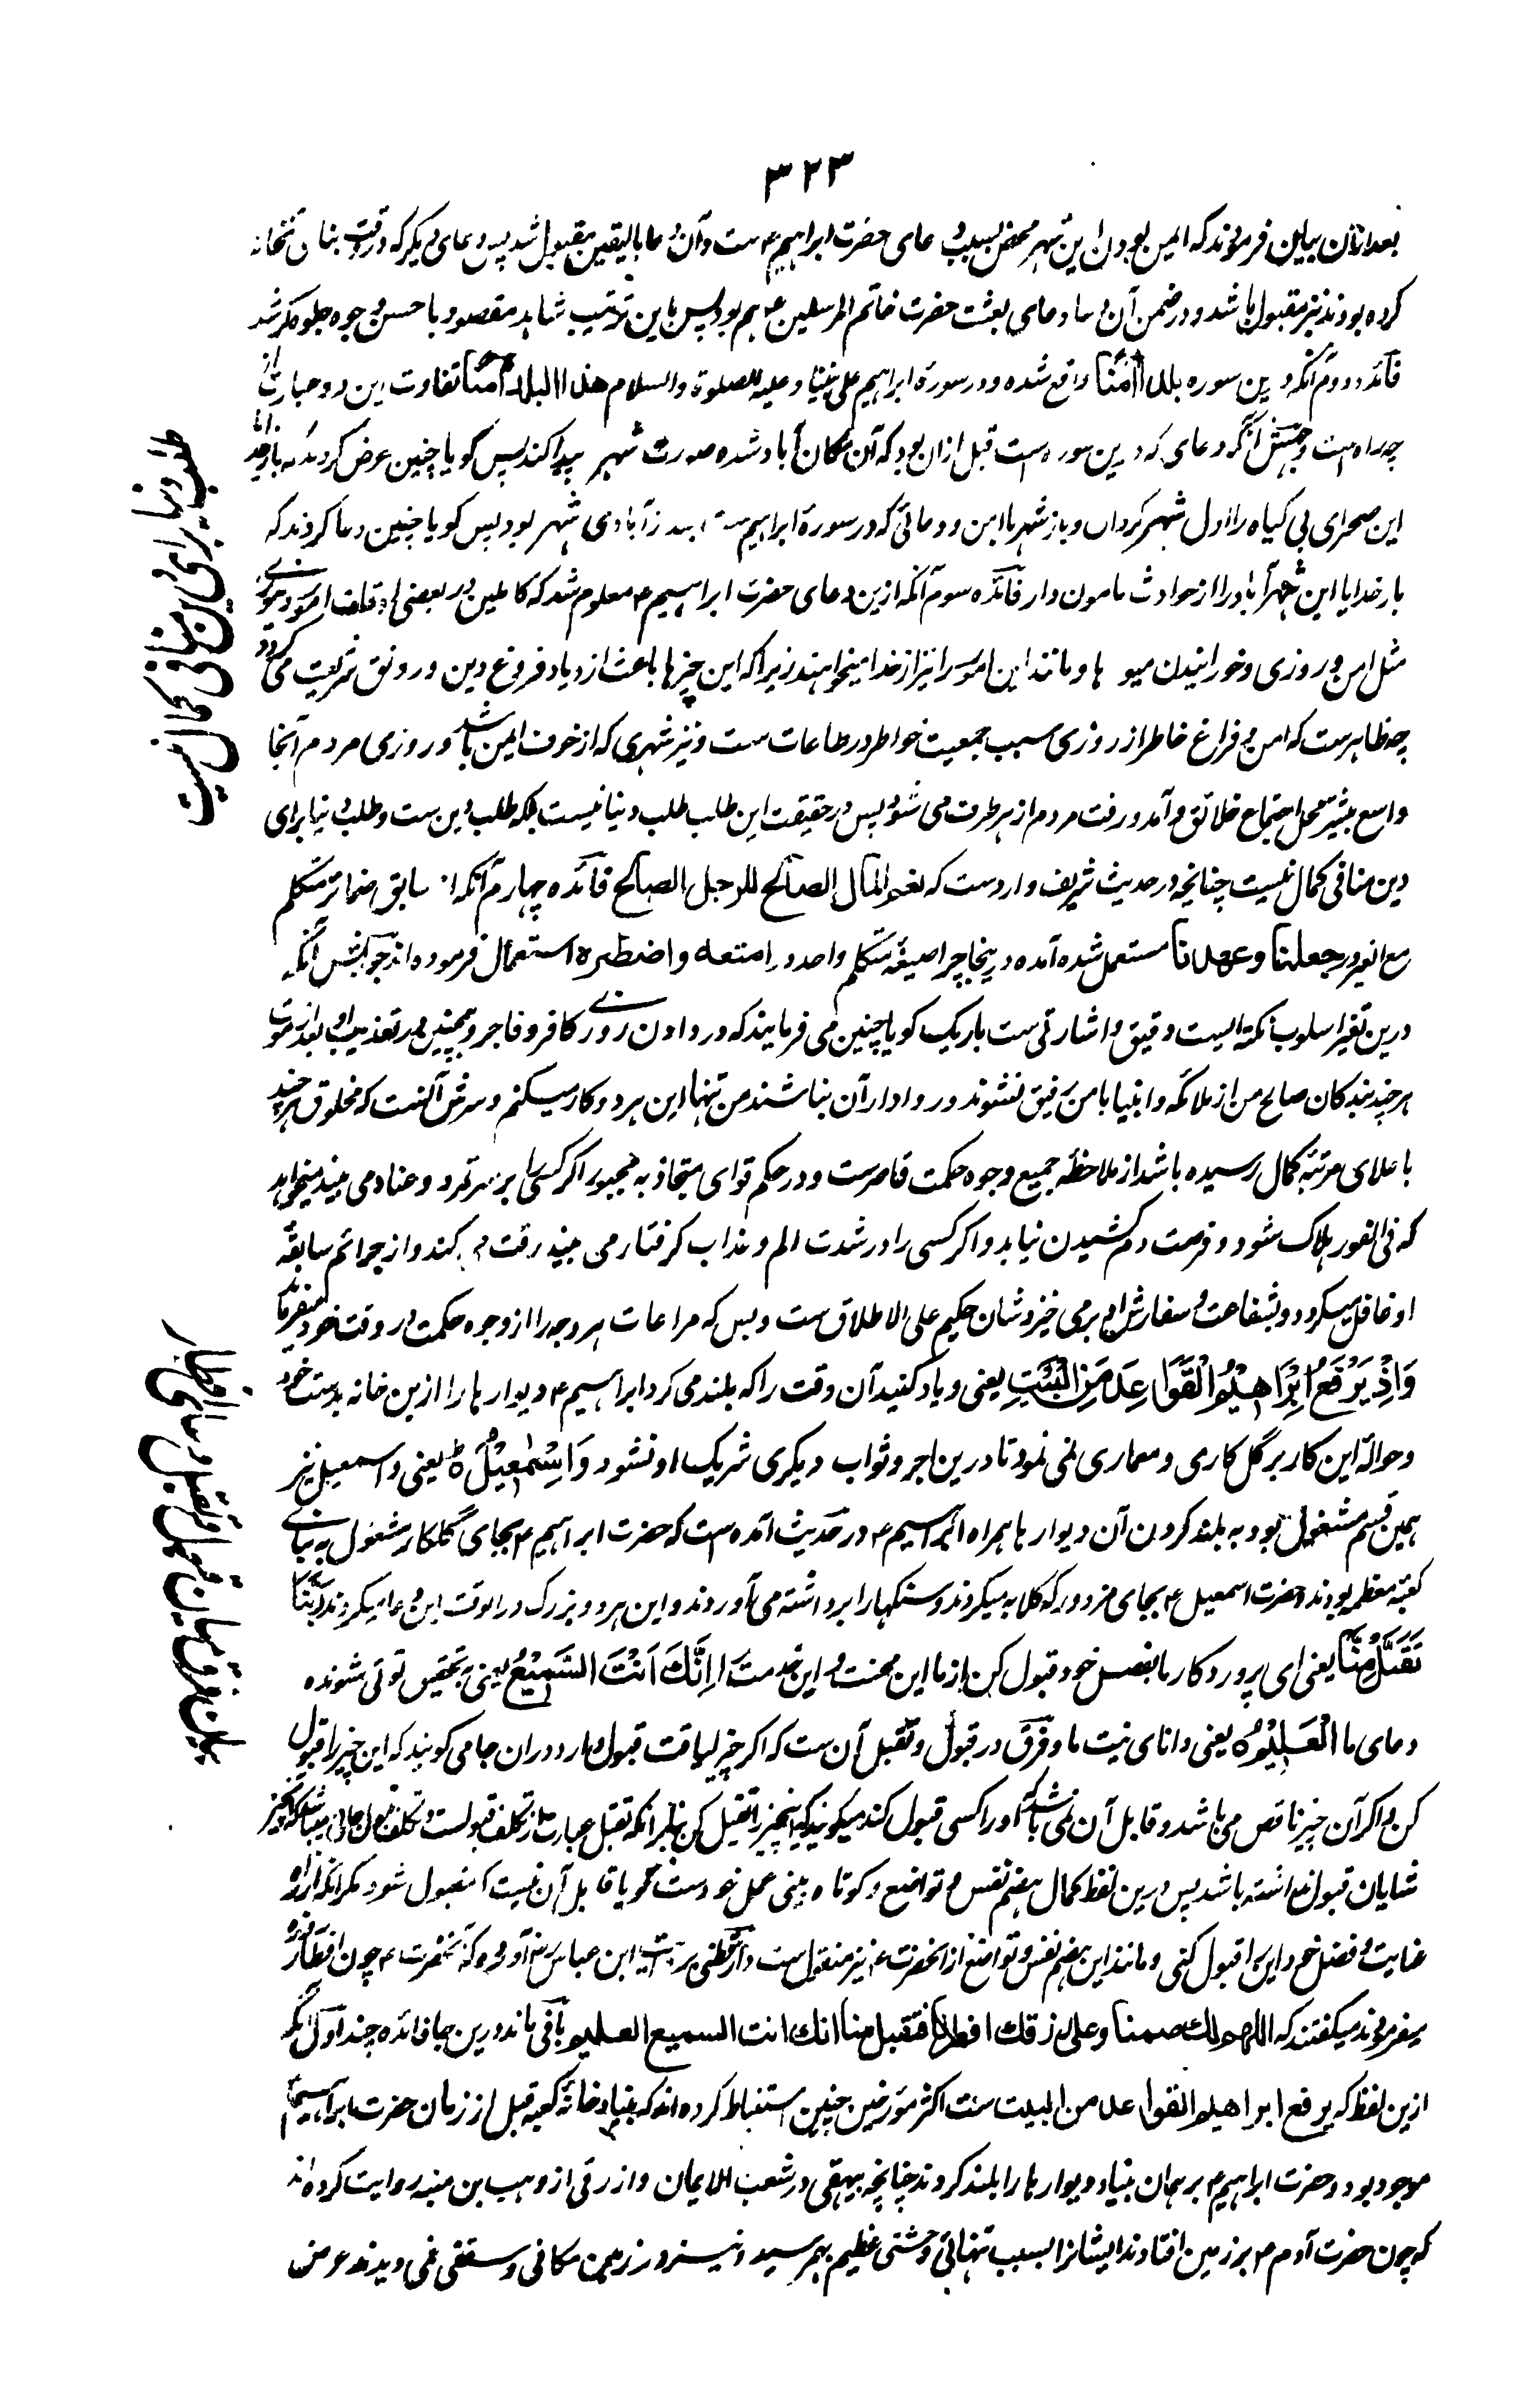 ٣٢٣
بعد ازان بیان فرمودند که ایمن بودن این شهر محض بسبب دعای حضرت ابراهیم ع ست و آن دعا بالیقین مقبول شد پس دعای دیگر که در وقت بنای خانه
کرده بودند نیز مقبول باشد و در ضمن آن دعا دعای بعثت حضرت خاتم المرسلین ع هم بود پس باین ترتیب شاهد مقصود باحسن وجوه جلوه گر شد
فائده دوم آنکه درین سوره بلدا آمنا واقع شده و در سورۀ ابراهیم علی نبینا و علیه الصلوة والسلام هذا البلد آمنا تفاوت این دو عبارت از
چه راه است جوابش آنکه دعای که درین سوره است قبل ازان بود که آن مکان آباد شده صورت شهر پیدا کند پس گویا چنین عرض کردند که بار خدایا
این صحرای بی گیاه را اول شهر گردان و باز شهر با امن و دعائی که در سورۀ ابراهیم ست بعد از آبادی شهر بود پس گویا چنین دعا کردند که
بار خدایا این شهر آباد را از حوادث مامون دار فائده سوم آنکه ازین دعای حضرت ابراهیم ع معلوم شد که کاملین در بعضی اوقات امور دنیوی
مثل امن و روزی و خورانیدن میوها و مانند این امور را نیز از خدا میخواهند زیرا که این چیزها باعث ازدیاد فروغ دین و رونق شریعت می گردد
چه ظاهرست که امن و فراغ خاطر از روزی سبب جمعیت خواطر در طاعات ست و نیز شهری که از خوف ایمن باشد و روزی مردم آنجا
واسع بیشتر محل اجتماع خلائق و آمد و رفت مردم از هر طرف می شود پس در حقیقت این طلب طلب دنیا نیست بلکه طلب دین ست و طلب دنیا برای
دین منافی کمال نیست چنانچه در حدیث شریف وارد ست که نعم المال الصالح للرجل الصالح فائده چهارم آنکه سابق ضمائر متکلم
مع الغیر در جعلنا و عهدنا مستعمل شده آمده درینجا چرا صیغۀ متکلم واحد در امتعه و اضطره استعمال فرموده اند جوابش آنکه
درین تغیر اسلوب نکته ایست دقیق و اشارتی ست باریک گویا چنین می فرمایند که در دادن روزی کافر و فاجر و همچنین در تعذیب او بعد از موت
هر چند بندگان صالح من از ملائکه و انبیا با من رفیق نشوند و روادار آن نباشند من تنها این هر دو کار میکنم و سرش آنست که مخلوق هر چند
باعلای مرتبۀ کمال رسیده باشد از ملاحظۀ جمیع وجوه حکمت قاصر ست و در حکم قوای متجاذبه مجبور اگر کسی را بر سر تمرد و عناد می بیند میخواهد
که فی الفور هلاک شود و فرصت دم کشیدن نیابد و اگر کسی را در شدت الم و عذاب گرفتار می بیند رقت می کند و از جرائم سابقۀ
او غافل میگردد و بشفاعت و سفارش او بر می خیزد شان حکیم علی الاطلاق ست و بس که مراعات هر وجه را از وجوه حکمت در وقت خود میفرماید
وَاِذْ يَرْفَعُ اِبْرَاهِيْمُ الْقَوَاعِدَ مِنَ الْبَيْتِ یعنی و یاد کنید آن وقت را که بلند می کرد ابراهیم ع دیوارها را ازین خانه بدست خود
و حوالۀ این کار بر گل کاری و معماری نمی نمود تا درین اجر و ثواب دیگری شریک او نشود وَاِسْمٰعِيْلُ ط یعنی و اسمعیل نیز
همین قسم مشغول بود به بلند کردن آن دیوارها همراه ابراهیم ع در حدیث آمده است که حضرت ابراهیم ع بجای گلکار مشغول به بنای
کعبۀ معظمه بودند و حضرت اسمعیل ع بجای مزدور که گلابه میکردند و سنگها را برداشته می آوردند و این هر دو بزرگ در انوقت این دعا میکردند رَبَّنَا
تَقَبَّلْ مِنَّا یعنی ای پروردگار ما بفضل خود قبول کن از ما این محنت و این خدمت را اِنَّكَ اَنْتَ السَّمِيْعُ یعنی به تحقیق توئی شنونده
دعای ما الْعَلِيْمُ ه یعنی دانای نیت ما و فرق در قبول و تقبل آن ست که اگر چیز لیاقت قبول دارد دران جا می گویند که این چیز را قبول
کن و اگر آن چیز ناقص می باشد و قابل آن نمی باشد که او را کسی قبول کند میگویند که این چیز را تقبل کن بنابر آنکه تقبل عبارت از تکلف قبولست و تکلف قبول جائی میباشد که آن چیز
شایان قبول نداشته باشد پس درین لفظ کمال هضم نفس و تواضع و کوتاه بینی عمل خودست گویا قابل آن نیست که مقبول شود مگر آنکه از راه
عنایت و فضل خود این را قبول کنی و مانند این هضم نفس و تواضع از آنحضرت ع نیز منقول ست دارقطنی بروایت ابن عباس رض آورده که آنحضرت ع چون افطار روزه
میفرمودند میگفتند که اللهم لك صمنا وعلى رزقك افطرنا فتقبل منا انك انت السميع العليم باقی ماند درین جا فائده چند اول آنکه
ازین لفظ که یرفع ابراهیم القواعد من البیت ست اکثر مؤرخین چنین استنباط کرده اند که بنیاد خانۀ کعبه قبل از زمان حضرت ابراهیم ع
موجود بود و حضرت ابراهیم ع بر همان بنیاد دیوارها را بلند کردند چنانچه بیهقی در شعب الایمان و ازرقی از وهب بن منبه روایت کرده اند
که چون حضرت آدم ع بر زمین افتادند ایشانرا بسبب تنهائی وحشتی عظیم بهم رسید و نیز در زمین مکانی و سقفی نمی دیدند عرض
طلب دنیا برای دین منافی کمال نیست
بیان فرق میان قبول و تقبل و دعای افطار